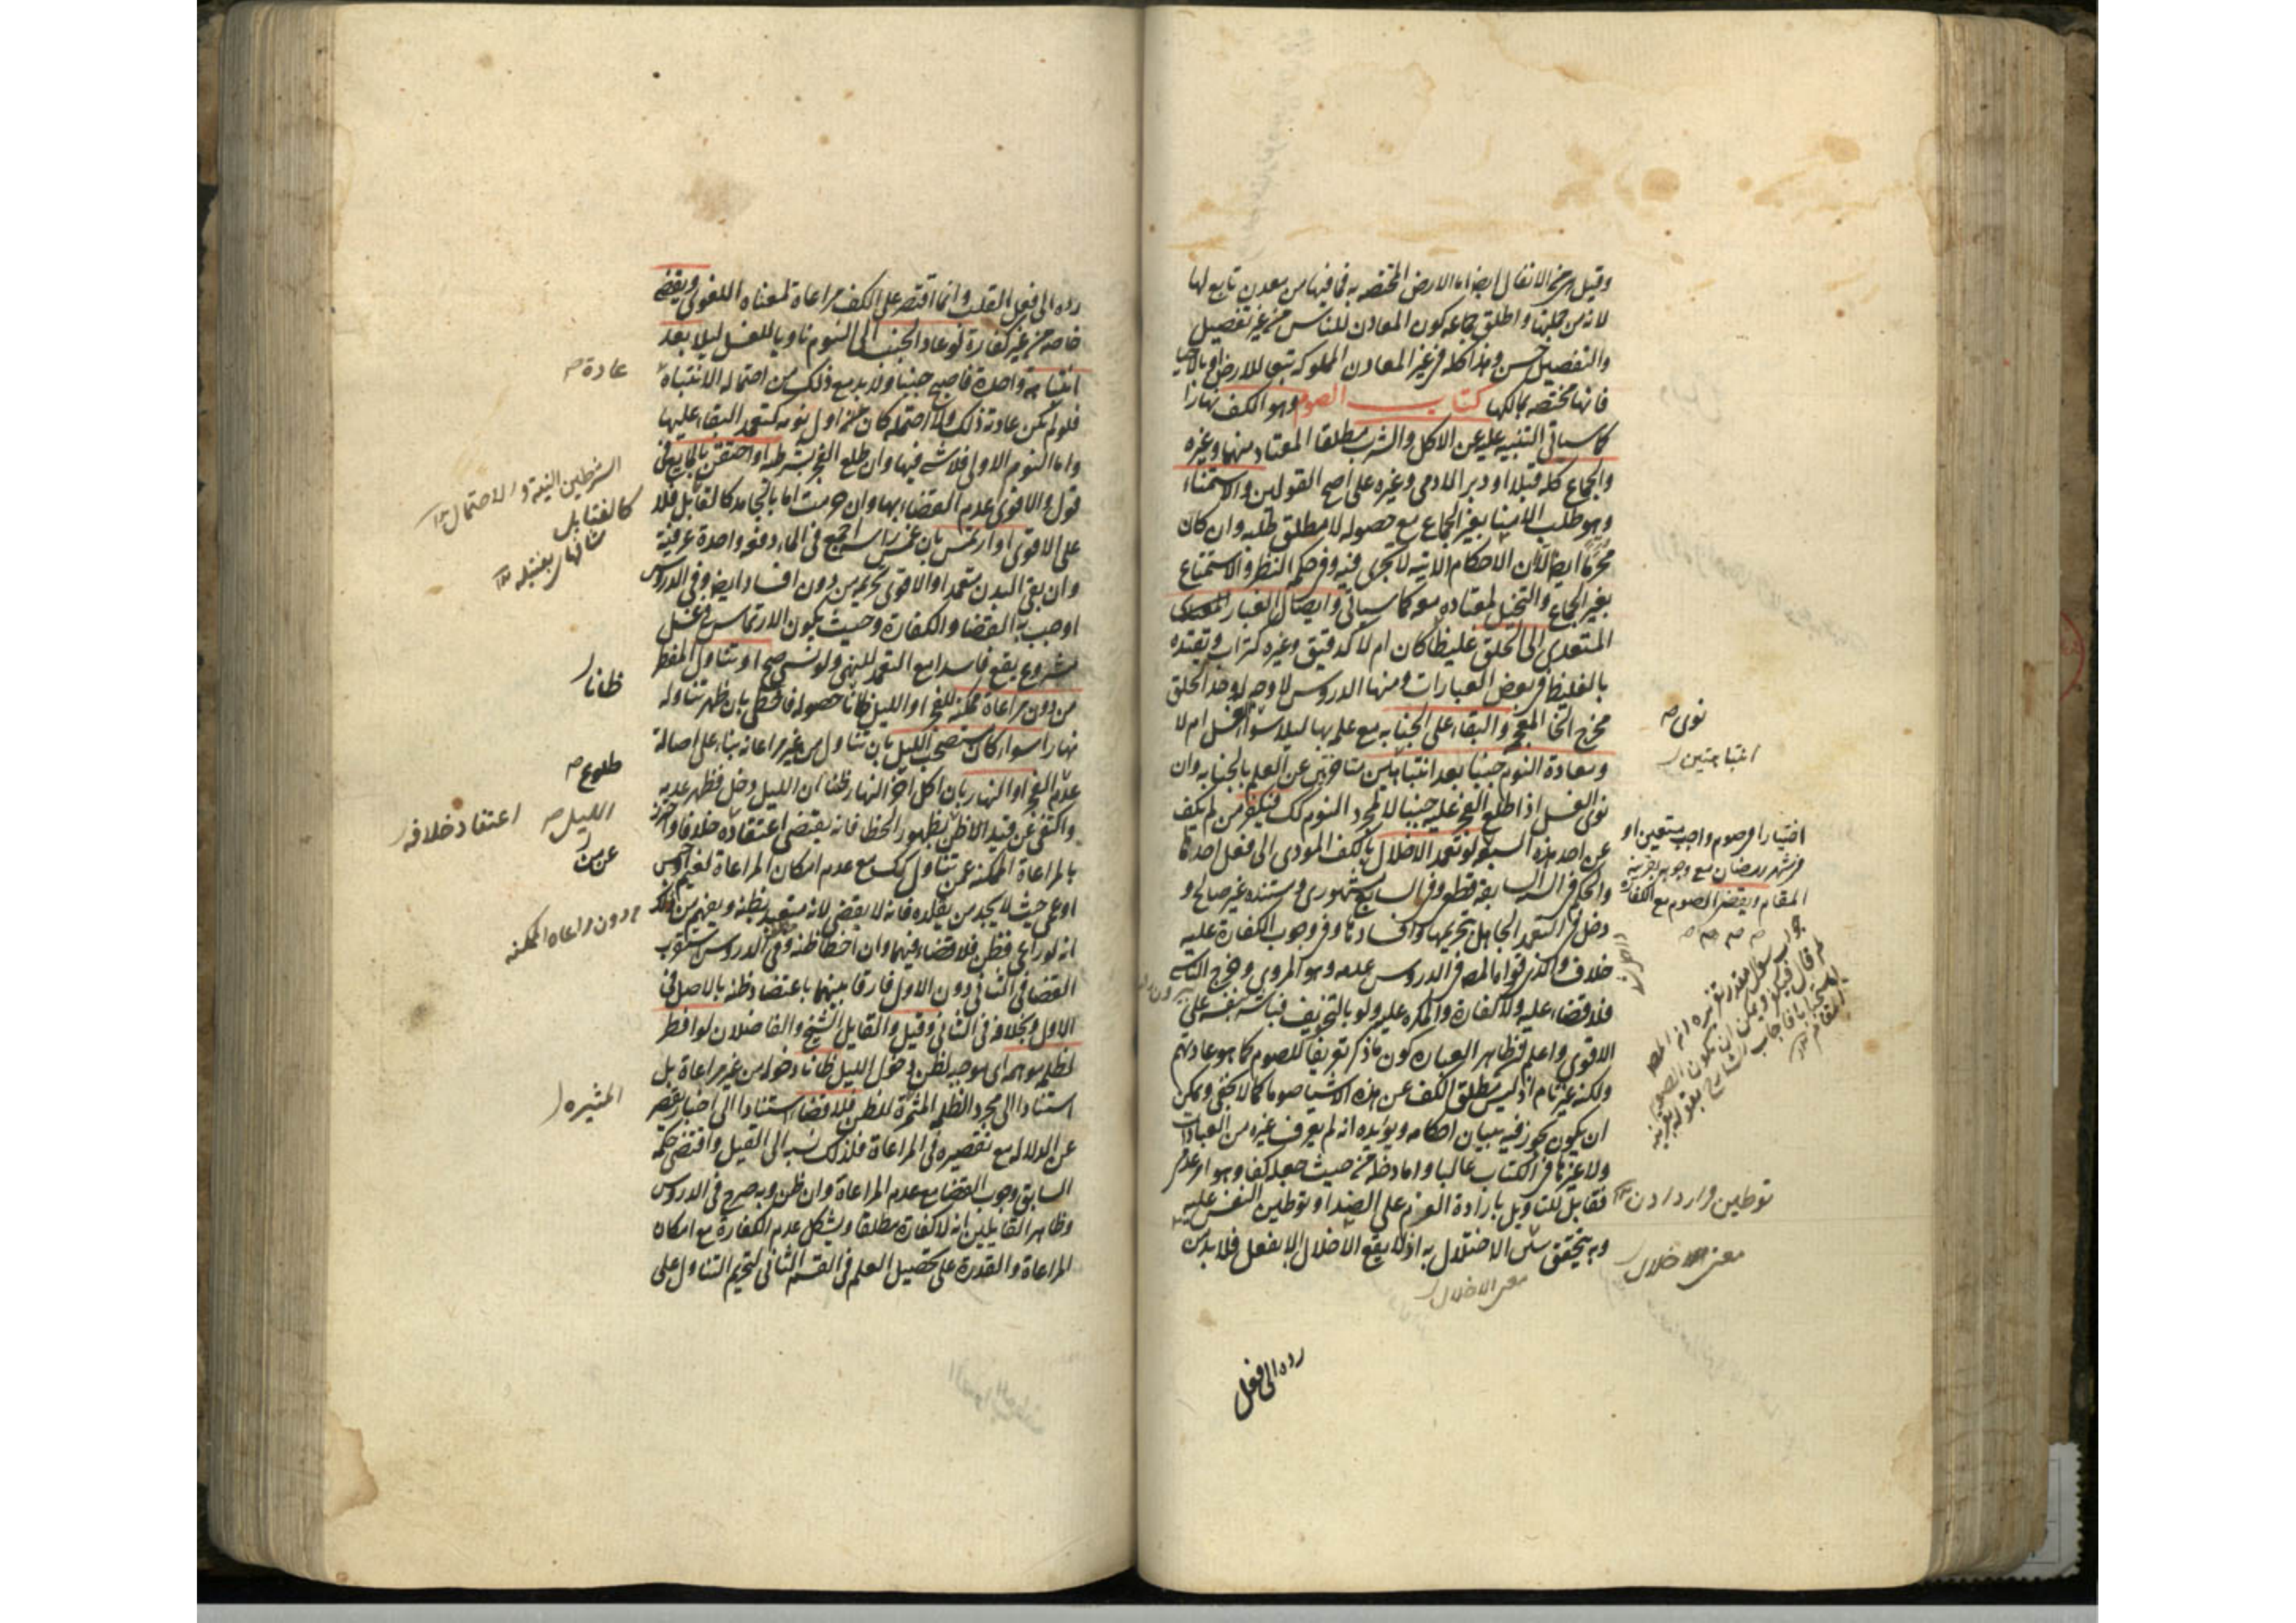 وقيل هي من الانفال ايضا اما الارض المختصه به فما فيها من معدن تابع لها
لانه من جملتها واطلق جماعه كون المعادن للناس من غير تفصيل
والتفصيل حسن وهذا كله في غير المعادن المملوكه تبعا للارض او بالاحيا
فانها مختصه بمالكها كتاب الصوم وهو الكف نهارا
كما سياتي التنبيه عليه عن الاكل والشرب مطلقا المعتاد منهما وغيره
والجماع كله قبلا او دبر الادمي وغيره على اصح القولين والاستمناء
وهو طلب الامنا بغير الجماع مع حصوله لا مطلق طلبه وان كان
محرما ايضا الا ان الاحكام الاتيه لا تجري فيه وفي حكمه النظر والاستمتاع
بغير الجماع والتخيل لمعتاده معه كما سياتي وايصال الغبار
المتعدي الى الحلق غليظا كان ام لا كدقيق وغيره كتراب وتقييده
بالغليظ في بعض العبارات ومنها الدروس لا وجه له وحد الحلق
مخرج الخا المعجمه والبقاء على الجنابه مع علمه بها ليلا سواء نوى الغسل ام لا
ومعاودة النوم جنبا بعد انتباهتين متاخرتين عن العلم بالجنابه وان
نوى الغسل اذا طلع الفجر عليه جنبا لا لمجرد النوم كك فيكفر من لم يكف
عن احد هذه السبعه لو تعمد الاخلال بالكف المودي الى فعل احدها
والحكم في السته السابقه قطعي وفي السابع مشهوري ومستنده غير صالح و
دخل في التعمد الجاهل بتحريمها وافسادها وفي وجوب الكفارة عليه
خلاف والذي قواه المص في الدروس عدمه وهو المروي وخرج الناسي
فلا قضاء عليه ولا كفارة والمكره عليه ولو بالتخويف فباشر بنفسه على
الاقوى واعلم ان ظاهر العباره كون ما ذكر تعريفا للصوم كما هو عادتهم
ولكنه غير تام اذ ليس مطلق الكف عن هذه الاشيا صوما كما لا يخفى ويمكن
ان يكون تجوز فيه ببيان احكامه ويؤيده انه لم يعرف غيره من العبادات
ولا غيرها في الكتاب غالبا واما دخله من حيث جعله كفا وهو امر عدمي
فقابل للتاويل بارادة العزم على الضد او توطين النفس عليه
وبه يتحقق الاختلال به اذ لا يقع الاخلال الا بفعل فلا بد من
رده الى فعل
نوى
انتباهتين
اختيارا في صوم واجب متعين او
في شهر رمضان مع وجوبه بقرينه
المقام ويقضي الصوم مع الكفارة
توطين
معنى الاخلال
معنى الاخلال
رده الى فعل القلب وانما اقتصر على الكف مراعاة لمعناه اللغوي ويقضي
خاصه من غير كفارة لو عاد الجنب الى النوم ناويا للغسل ليلا بعد
انتباهه واحدة فاصبح جنبا ولا بد مع ذلك من احتماله الانتباه
فلو لم يكن عادته ذلك ولا احتمله كان من اول نومه كمتعمد البقاء عليها
واما النوم الاولى فلا شي فيها وان طلع الفجر بشرطه او احتقن بالمايع في
قول والاقوى عدم القضاء بها وان حرمت اما بالجامد كالفتايل فلا
على الاقوى او ارتمس بان غمس راسه اجمع في الماء دفعه واحدة عرفيه
وان بقي البدن متعمدا والاقوى تحريمه من دون افساد ايضا وفي الدروس
اوجب به القضا والكفارة وحيث يكون الارتماس في غسل
مشروع يقع فاسدا مع التعمد للنهي ولو نسي صح او تناول المفطر
من دون مراعاة ممكنه للفجر او الليل ظانا حصوله فاخطا بان ظهر تناوله
نهارا سواء كان مستصحب الليل بان تناول من غير مراعاة بناء على اصالة
عدم الفجر او النهار بان اكل اخر النهار ظنا ان الليل دخل فظهر عدمه
واكتفى عن قيد الاظن بظهور الخطا فانه يقتضي اعتقاده خلافا واحترز
بالمراعاة الممكنه عمن تناول كك مع عدم امكان المراعاة لغيم او حبس
او عمى حيث لا يجد من يقلده فانه لا يقضي لانه متعبد بظنه ويفهم من ذلك
انه لو راعى فظن فلا قضاء فيهما وان اخطا ظنه وفي الدروس استقرب
القضا في الثاني دون الاول فارقا بينهما باعتضاد ظنه بالاصل في
الاول وبخلافه في الثاني وقيل والقايل الشيخ والفاضلان لو افطر
لظلمه موهمه اي موجبه لظن دخول الليل ظانا دخوله من غير مراعاة بل
استنادا الى مجرد الظلمه المثمرة للظن فلا قضاء استنادا الى اخبار تقصر
عن الدلاله مع تقصيره في المراعاة فلذلك نسبه الى القيل واقتضى حكمه
السابق وجوب القضا مع عدم المراعاة وان ظن وبه صرح في الدروس
وظاهر القايلين انه لا كفارة مطلقا ويشكل عدم الكفارة مع امكان
المراعاة والقدرة على تحصيل العلم في القسم الثاني لتحريم التناول على
عادة
الشرطين النية والاحتمال
كالفتايل
ظانا
طلوع
الليل
اعتقاد خلافه
عن من
دون مراعاه الممكنه
المثيره